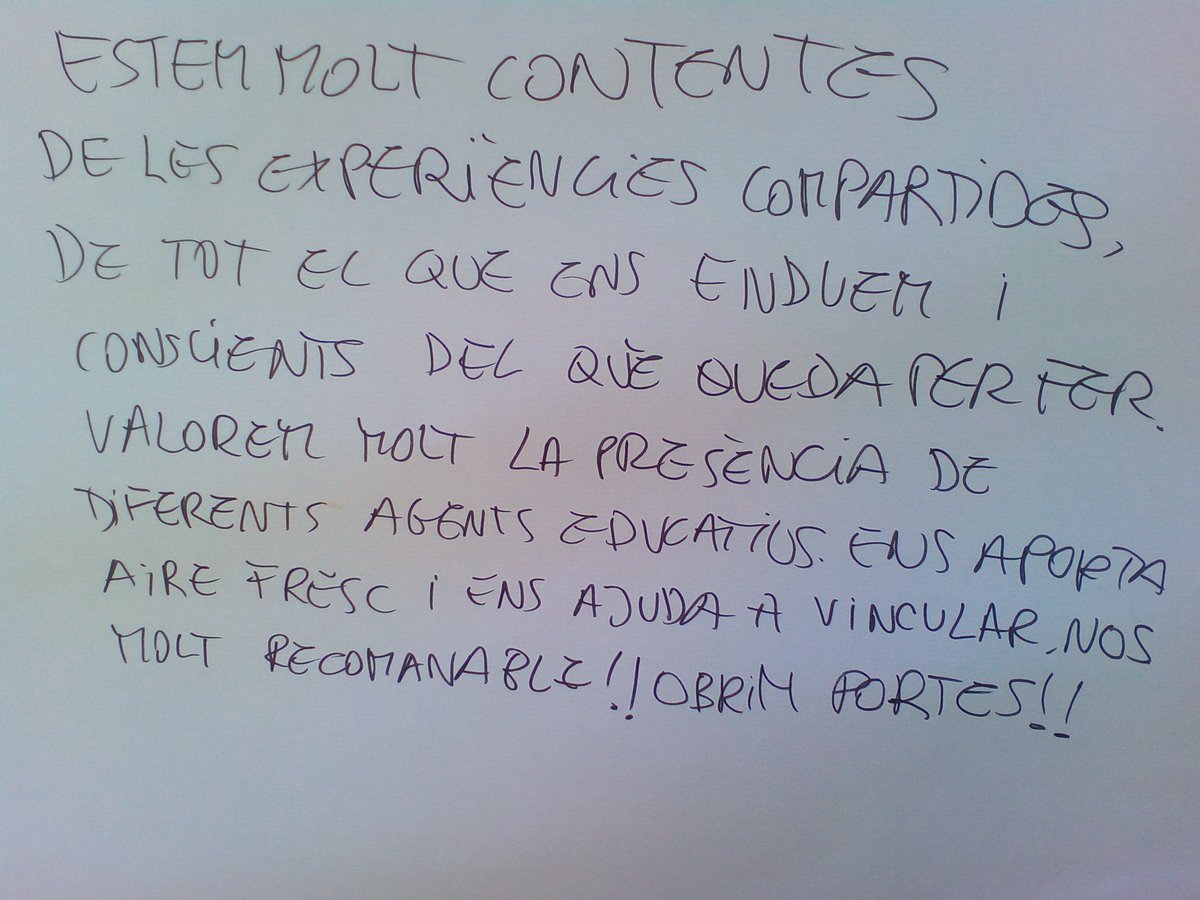 ESTEM MOLT CONTENTES
DE LES EXPERIÈNCIES COMPARTIDES,
DE TOT EL QUE ENS ENDUEM i
CONSCIENTS DEL QUÈ QUEDA PER FER.
VALOREM MOLT LA PRESÈNCIA DE
DIFERENTS AGENTS EDUCATIUS. ENS APORTA
AIRE FRESC i ENS AJUDA A VINCULAR-NOS
MOLT RECOMANABLE!! OBRIM PORTES!!